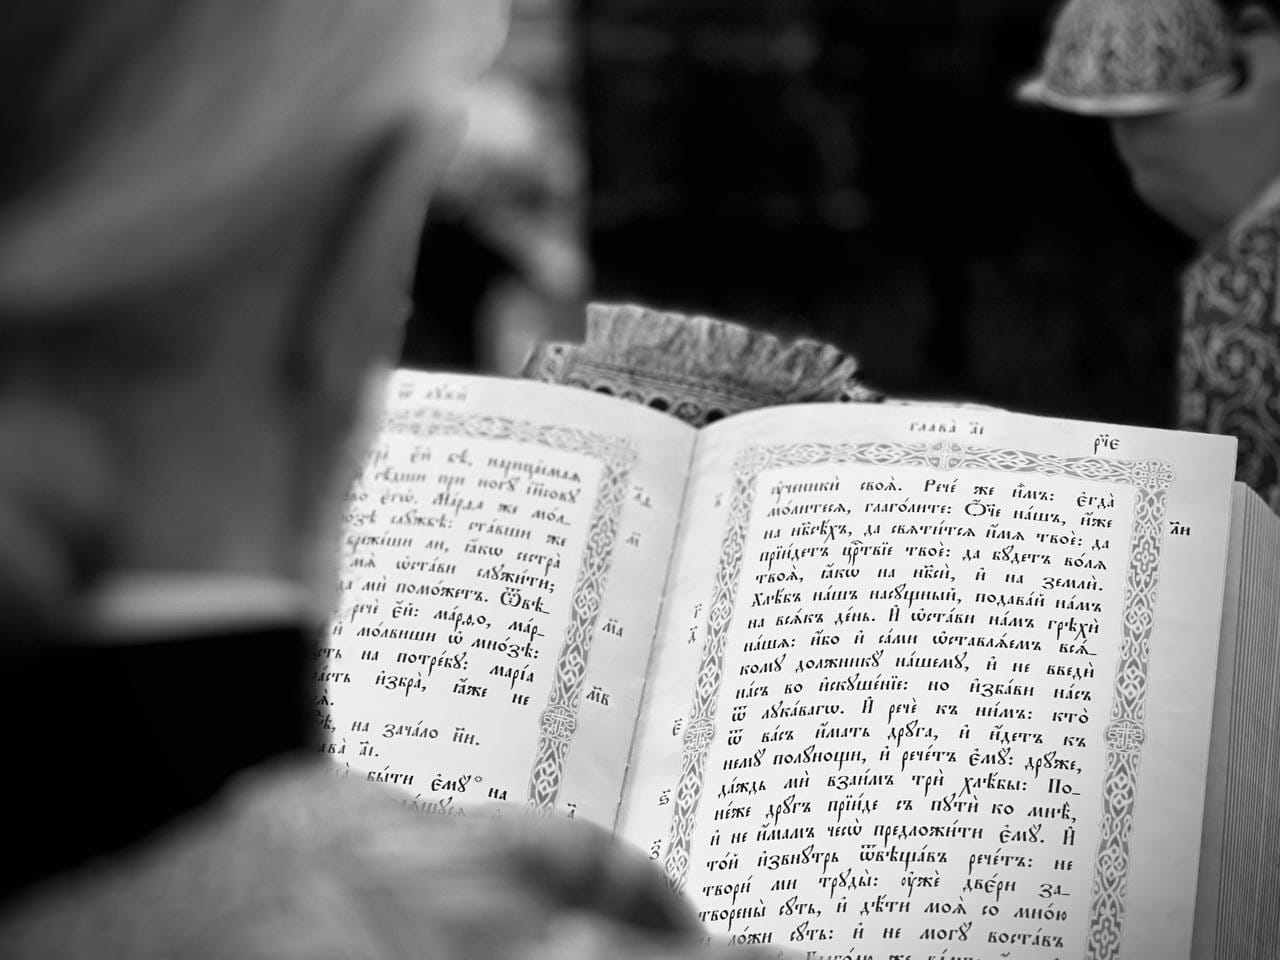 ѿ лꙋки́
є҆́й бѣ̀, нарица́емаѧ
сѣ́дши при ногꙋ̀ і҆и҃сѡвꙋ
є҆гѡ̀. Ма́рѳа же мо́л-
слꙋ́жбѣ: ста́вши же
ли, ꙗ҆́кѡ сестра̀
мѧ̀ ѡ҆ста́ви слꙋжи́ти;
да мѝ помо́жетъ. Ѿвѣ-
речѐ є҆́й: ма́рѳо, ма́р-
и҆ мо́лвиши ѡ҆ мно́зѣ:
на потре́бꙋ: марі́а
и҆збра̀, ꙗ҆́же не
на зача́ло н҃и.
а҃і.
бы́ти є҆мꙋ̀ на
м҃
м҃а
м҃в
а҃
глава̀ а҃і
рч҃є
ᲂу҆ченикѝ своѧ̀. Рече́ же и҆̀мъ: є҆гда̀
мо́литесѧ, глаго́лите: Ѻ҆́ч҃е на́шъ, и҆́же
на нб҃сѣ́хъ, да свѧти́тсѧ и҆́мѧ твоѐ: да
прїи́детъ црⷭ҇твїе твоѐ: да бꙋ́детъ во́лѧ
твоѧ̀, ꙗ҆́кѡ на нб҃сѝ, и҆ на землѝ.
Хлѣ́бъ на́шъ насꙋ́щный, подава́й на́мъ
на всѧ́къ де́нь. И҆ ѡ҆ста́ви на́мъ грѣхѝ
на́шѧ: и҆́бо и҆ са́ми ѡ҆ставлѧ́емъ всѧ́-
комꙋ должникꙋ̀ на́шемꙋ, и҆ не введѝ
на́съ во и҆скꙋше́нїе: но и҆зба́ви на́съ
ѿ лꙋка́вагѡ. И҆ речѐ къ ни̑мъ: кто̀
ѿ ва́съ и҆́мать дрꙋ́га, и҆ и҆́детъ къ
немꙋ̀ полꙋ́нощи, и҆ рече́тъ є҆мꙋ̀: дрꙋ́же,
да́ждь мѝ взаи́мъ трѝ хлѣ́бы: По-
не́же дрꙋ́гъ прїи́де съ пꙋтѝ ко мнѣ̀,
и҆ не и҆́мамъ чесѡ̀ предложи́ти є҆мꙋ̀. И҆
то́й и҆звнꙋ́трь ѿвѣща́въ рече́тъ: не
творѝ ми трꙋды̀: ᲂу҆жѐ две́ри за-
творены̀ сꙋ́ть, и҆ дѣ́ти моѧ̀ со мно́ю
ло́жи сꙋ́ть: и҆ не могꙋ̀ воста́въ
г҃
д҃
є҃
ѕ҃
з҃